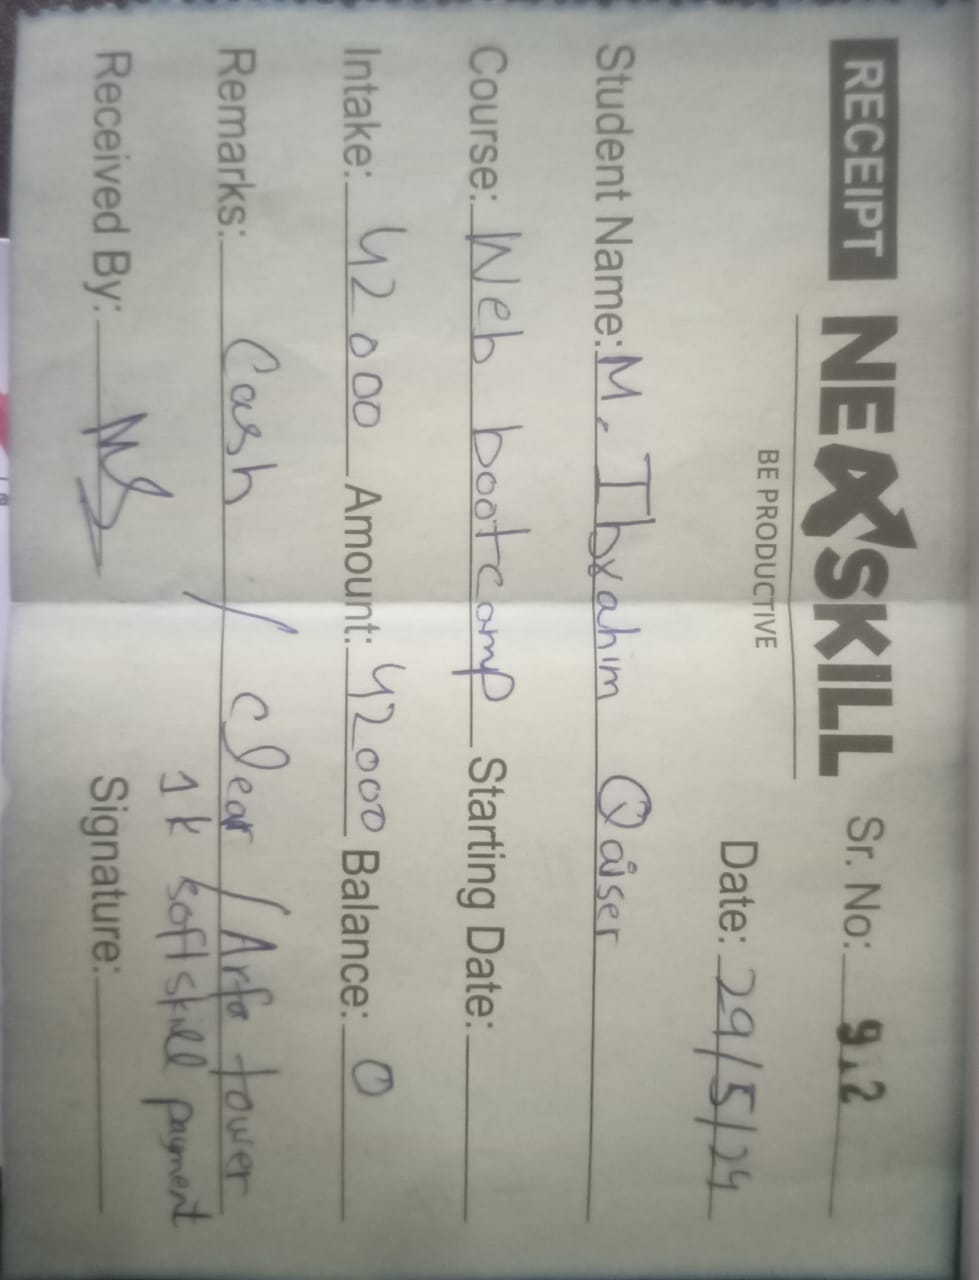 RECEIPT NEXSKILL Sr. No: 912
BE PRODUCTIVE
Date: 29/5/24
Student Name: M. Ibrahim Qaiser
Course: Web bootcamp Starting Date:
Intake: 42000 Amount: 42000 Balance: 0
Remarks: Cash / clear / Arfa tower
1k soft skill payment
Received By: Signature: